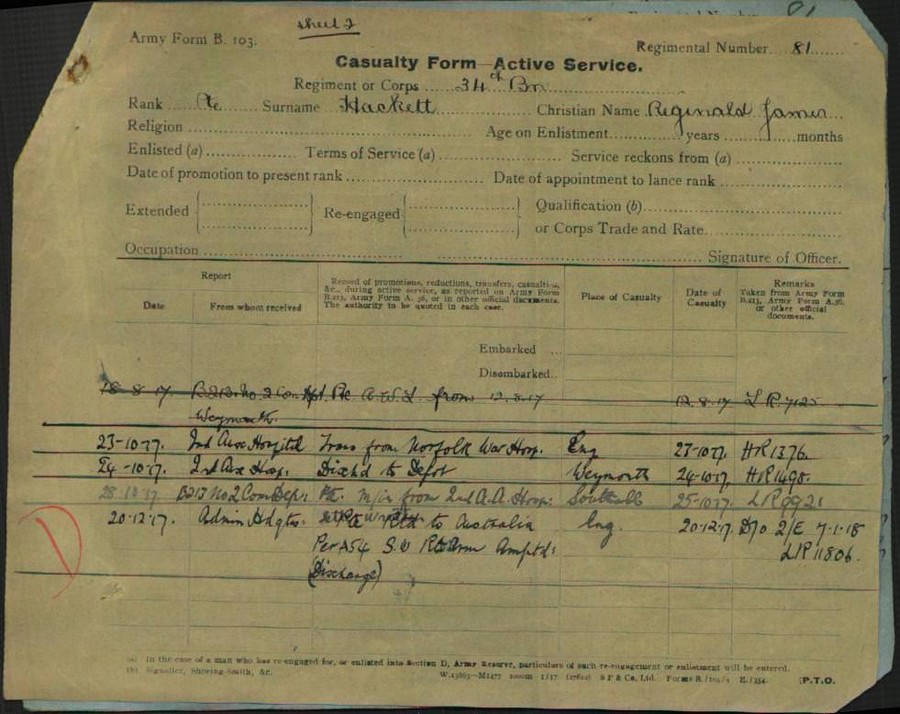 sheet 2
Army Form B. 103.
Regimental Number 81
Casualty Form—Active Service.
Regiment or Corps 34th Bn
Rank Pte Surname Hackett Christian Name Reginald James
Religion Age on Enlistment years months
Enlisted (a) Terms of Service (a) Service reckons from (a)
Date of promotion to present rank Date of appointment to lance rank
Extended Re-engaged Qualification (b)
or Corps Trade and Rate
Occupation Signature of Officer.
Report
Date From whom received
Record of promotions, reductions, transfers, casualties,
&c., during active service, as reported on Army Form
B.213, Army Form A. 36, or in other official documents.
The authority to be quoted in each case.
Place of Casualty
Date of
Casualty
Remarks
Taken from Army Form
B.213, Army Form A.36,
or other official
documents.
Embarked ...
Disembarked..
18-8-17 B213 No. 2 Com Dpt Pte A.W.L. from 12.8.17 12.8.17 LR 7125
Weymouth.
23-10-17. 2nd Aux Hospital Trans from Norfolk War Hosp. Eng 23-10-17. HR1376.
24-10-17. 2nd Aux Hosp. Disch'd to Depot Weymouth 24-10-17. HR1498.
28-10-17 B213 No2 Com Dep: Pte. M/in from 2nd A.A. Hosp: Southall 25-10-17. LR9921
20-12-17. Admin Hdqts. Rtd to Australia Eng. 20-12-17. D/o 2/E 7-1-18
Per A54 S.W Rt Arm Amptd: LR 11806.
(Discharge)
D
(a) In the case of a man who has re-engaged for, or enlisted into Section D, Army Reserve, particulars of such re-engagement or enlistment will be entered.
(b) Signaller, Shoeing-Smith, &c.
S P & Co., Ltd. Forms B./103/1
(P.T.O.